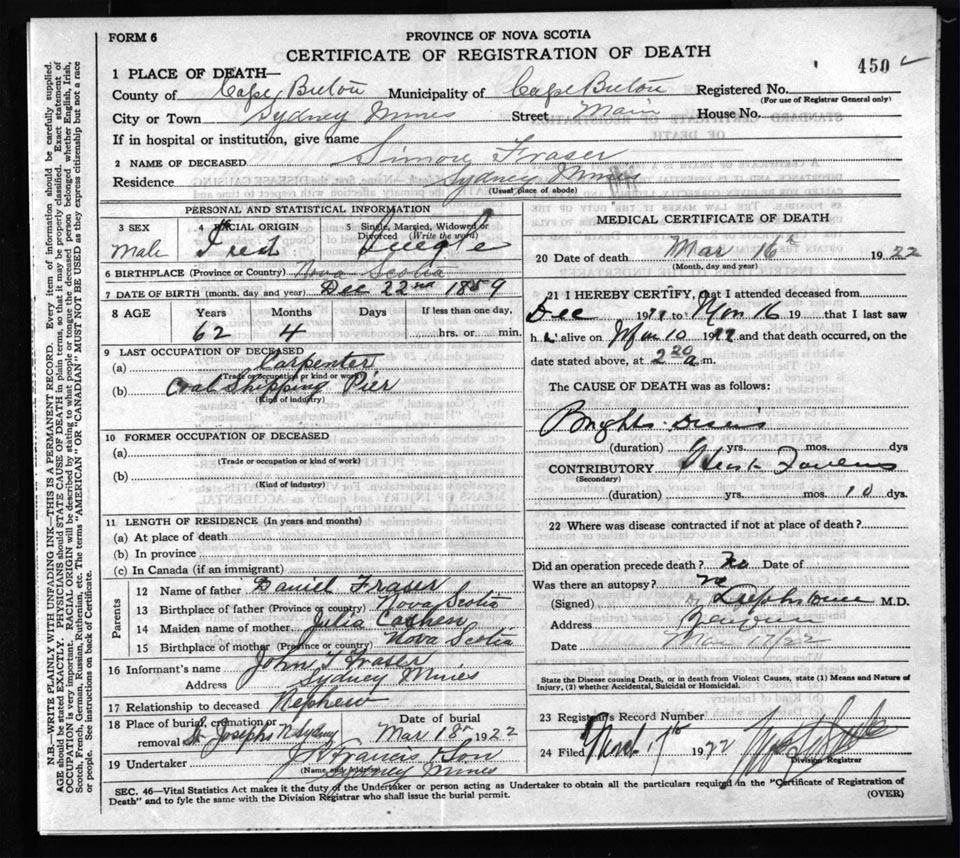 FORM 6
PROVINCE OF NOVA SCOTIA
CERTIFICATE OF REGISTRATION OF DEATH
450
1 PLACE OF DEATH—
County of Cape Breton Municipality of Cape Breton Registered No.
(For use of Registrar General only)
City or Town Sydney Mines Street Main House No.
If in hospital or institution, give name
2 NAME OF DECEASED Simon Fraser
Residence Sydney Mines
(Usual place of abode)
PERSONAL AND STATISTICAL INFORMATION
3 SEX 4 RACIAL ORIGIN 5 Single, Married, Widowed or Divorced (Write the word)
Male Single
6 BIRTHPLACE (Province or Country) Nova Scotia
7 DATE OF BIRTH (month, day and year) Dec 22nd 1859
8 AGE Years Months Days If less than one day,
62 4 hrs. or min.
9 LAST OCCUPATION OF DECEASED
(a) Carpenter
(Trade or occupation or kind of work)
(b) Coal Shipping Pier
(Kind of industry)
10 FORMER OCCUPATION OF DECEASED
(a)
(Trade or occupation or kind of work)
(b)
(Kind of industry)
11 LENGTH OF RESIDENCE (In years and months)
(a) At place of death
(b) In province
(c) In Canada (if an immigrant)
Parents
12 Name of father Daniel Fraser
13 Birthplace of father (Province or country) Nova Scotia
14 Maiden name of mother Julia
15 Birthplace of mother (Province or country) Nova Scotia
16 Informant's name John Fraser
Address Sydney Mines
17 Relationship to deceased Nephew
18 Place of burial, cremation or removal St Josephs N Sydney Date of burial Mar 18 1922
19 Undertaker Francis Son
(Name and address)
Sydney Mines
MEDICAL CERTIFICATE OF DEATH
20 Date of death Mar 16th 1922
(Month, day and year)
21 I HEREBY CERTIFY, that I attended deceased from
Dec 19 to 16 19 that I last saw
h alive on 10 and that death occurred, on the
date stated above, at 2 20 a m.
The CAUSE OF DEATH was as follows:
Brights
(duration) yrs. mos. dys
CONTRIBUTORY
(Secondary)
(duration) yrs. mos. 10 dys.
22 Where was disease contracted if not at place of death?
Did an operation precede death? No Date of
Was there an autopsy? no
(Signed) M.D.
Address
Date Mar 17/22
State the Disease causing Death, or in death from Violent Causes, state (1) Means and Nature of Injury, (2) whether Accidental, Suicidal or Homicidal.
23 Registrar's Record Number
24 Filed 1922
Division Registrar
SEC. 46—Vital Statistics Act makes it the duty of the Undertaker or person acting as Undertaker to obtain all the particulars required in the "Certificate of Registration of
Death" and to fyle the same with the Division Registrar who shall issue the burial permit. (OVER)
N.B.—WRITE PLAINLY WITH UNFADING INK—THIS IS A PERMANENT RECORD. Every item of information should be carefully supplied.
AGE should be stated EXACTLY. PHYSICIANS should STATE CAUSE OF DEATH in plain terms, so that it may be properly classified. Exact statement of
OCCUPATION is very important. RACIAL ORIGIN will be described by stating to what people or tongue the deceased person belonged whether English, Irish,
Scotch, French, German, Russian, Ruthenian, etc. The terms "AMERICAN" or "CANADIAN" MUST NOT BE USED as they express citizenship but not a race
or people. See instructions on back of Certificate.